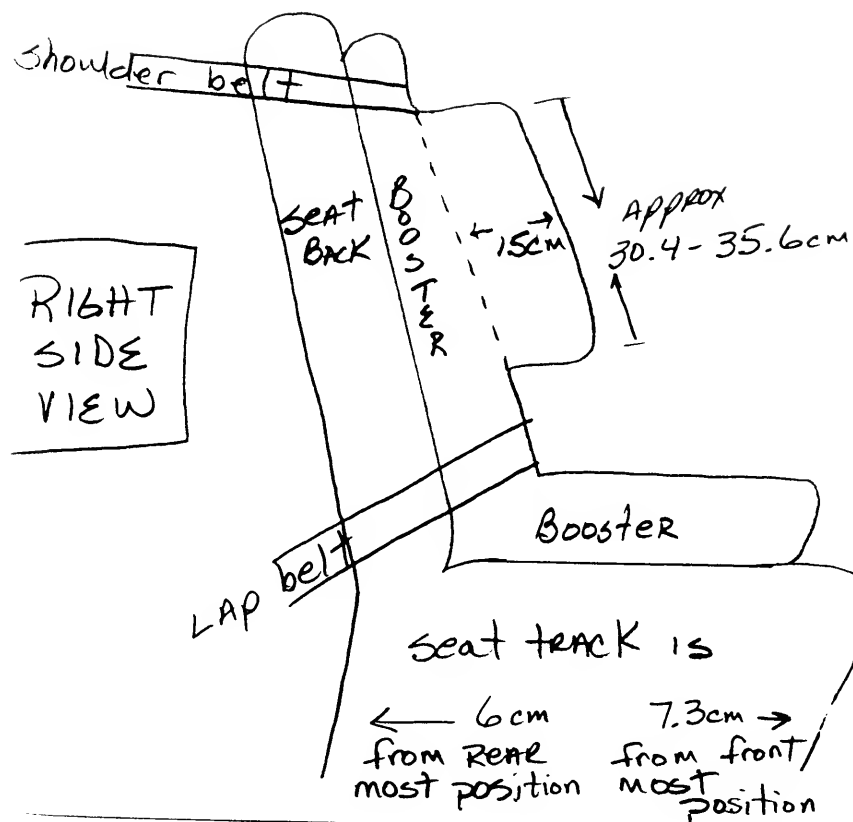 shoulder belt
SEAT
BACK
BOOSTER
15cm
APPROX
30.4 - 35.6cm
RIGHT
SIDE
VIEW
Booster
LAP belt
seat tRACK is
6cm
from REAR
most position
7.3cm
from front
most
position